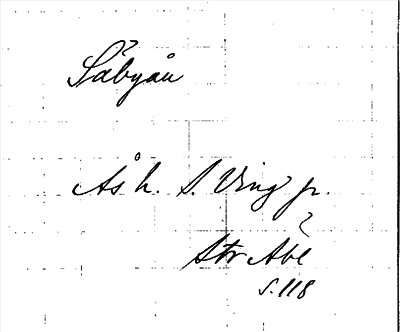 Säbyån
Ås h. S. Ving sn.
Str Abl
s. 118